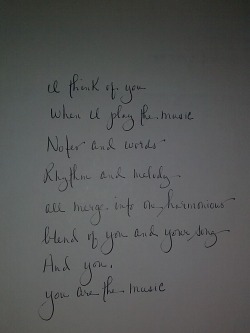 I think of you
When I play the music
Notes and words
Rhythm and melody
all merge into one harmonious
blend of you and your song
And you,
you are the music